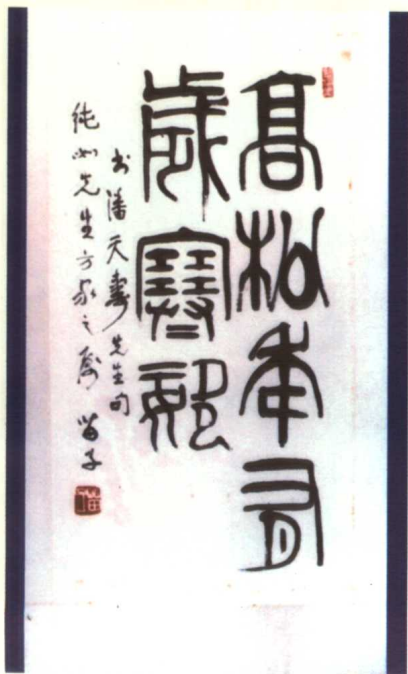 高松幸有
歲寒知
书潘天壽先生句
純如先生方家之属 苗子
苗